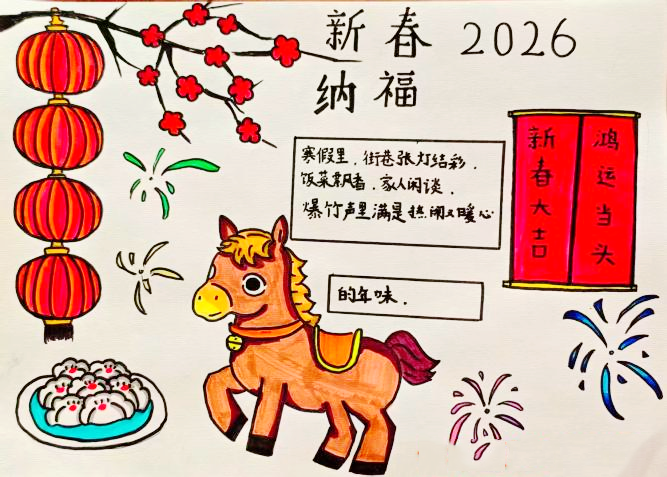 新春 2026
纳福
寒假里，街巷张灯结彩，
饭菜飘香，家人闲谈，
爆竹声里满是热闹又暖心
的年味．
鸿运当头
新春大吉